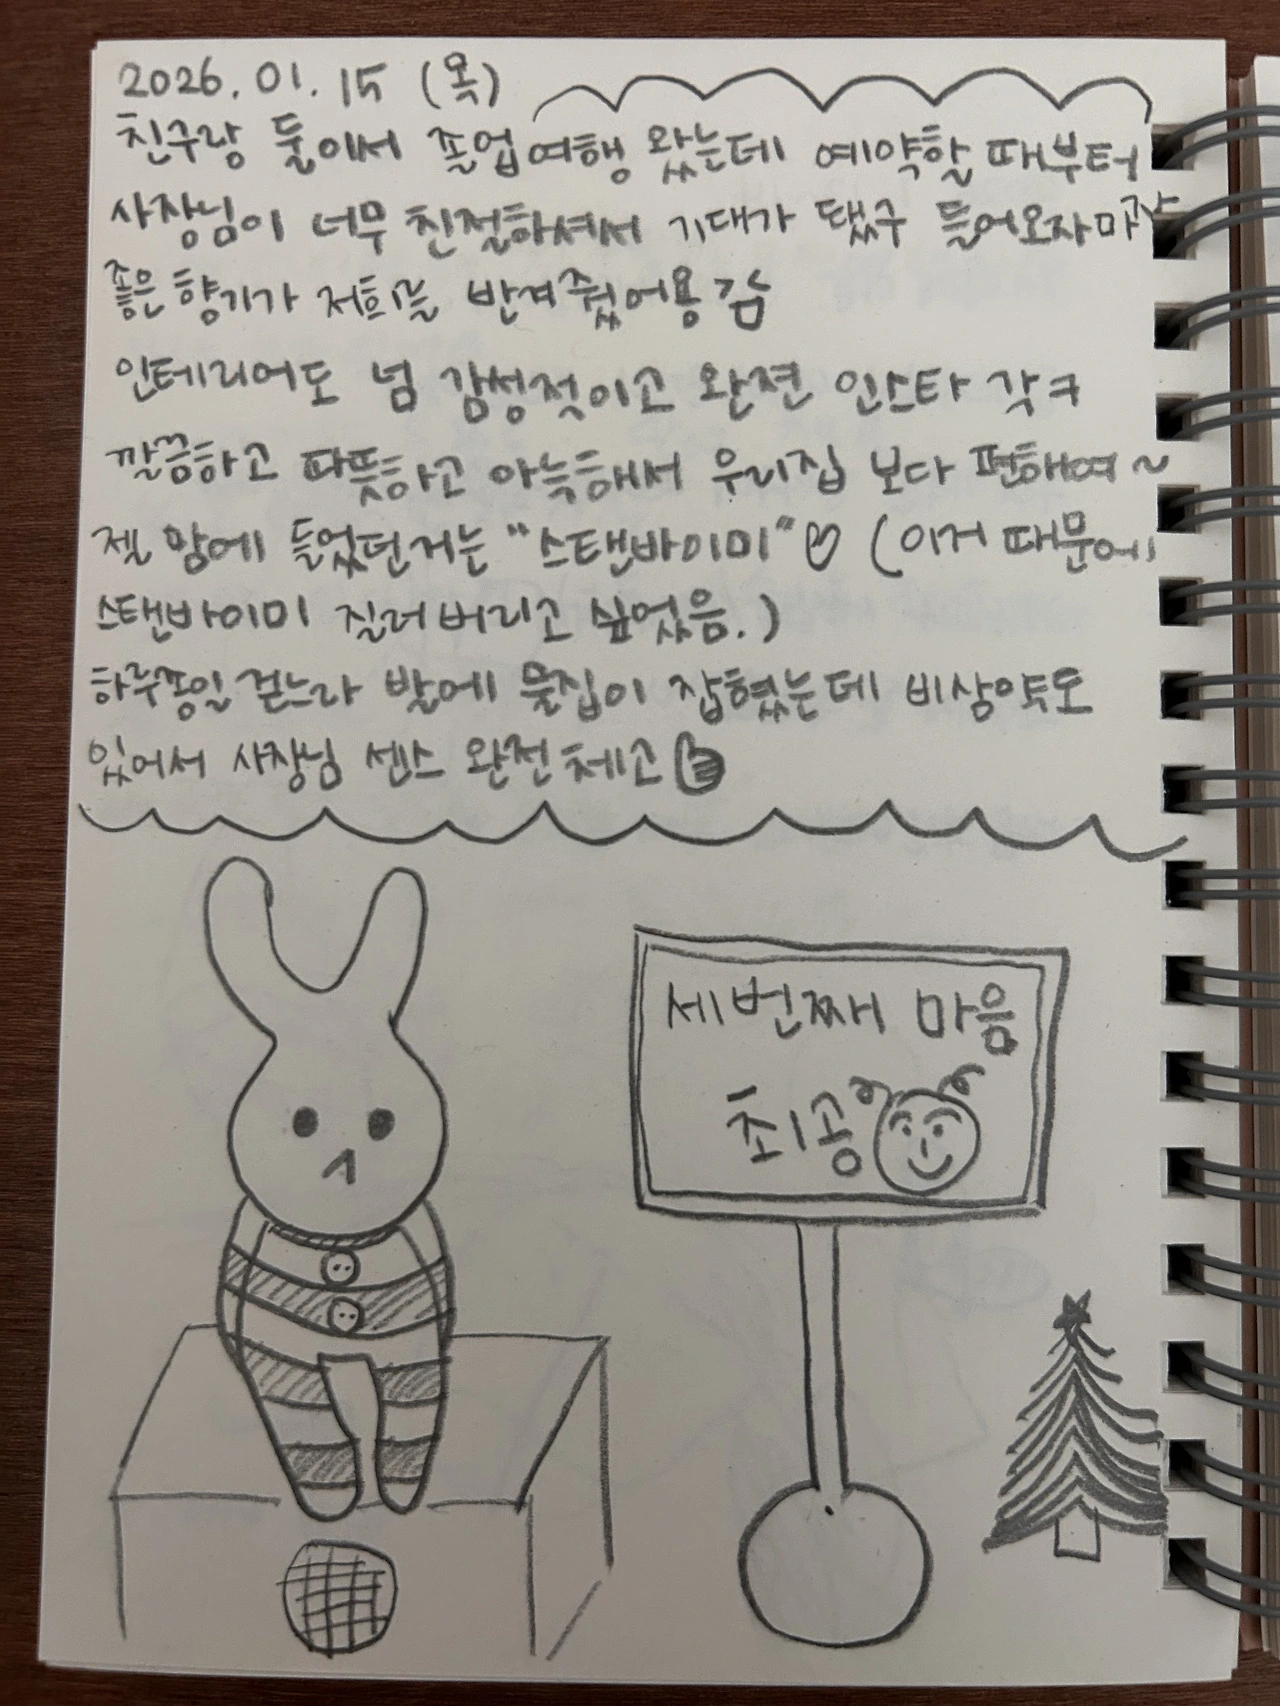 2026. 01. 15 (목)
친구랑 둘이서 졸업여행 왔는데 예약할 때부터
사장님이 너무 친절하셔서 기대가 됐구 들어오자마자
좋은 향기가 저희를 반겨줬어용 감
인테리어도 넘 감성적이고 완젼 인스타 각ㅋ
깔끔하고 따뜻하고 아늑해서 우리집 보다 편해여~
젤 맘에 들었던거는 "스탠바이미"♡ (이거 때문에
스탠바이미 질러버리고 싶었음.)
하루죙일 걷느라 발에 물집이 잡혔는데 비상약도
있어서 사장님 센스 완전 체고
세번째 마음
최공